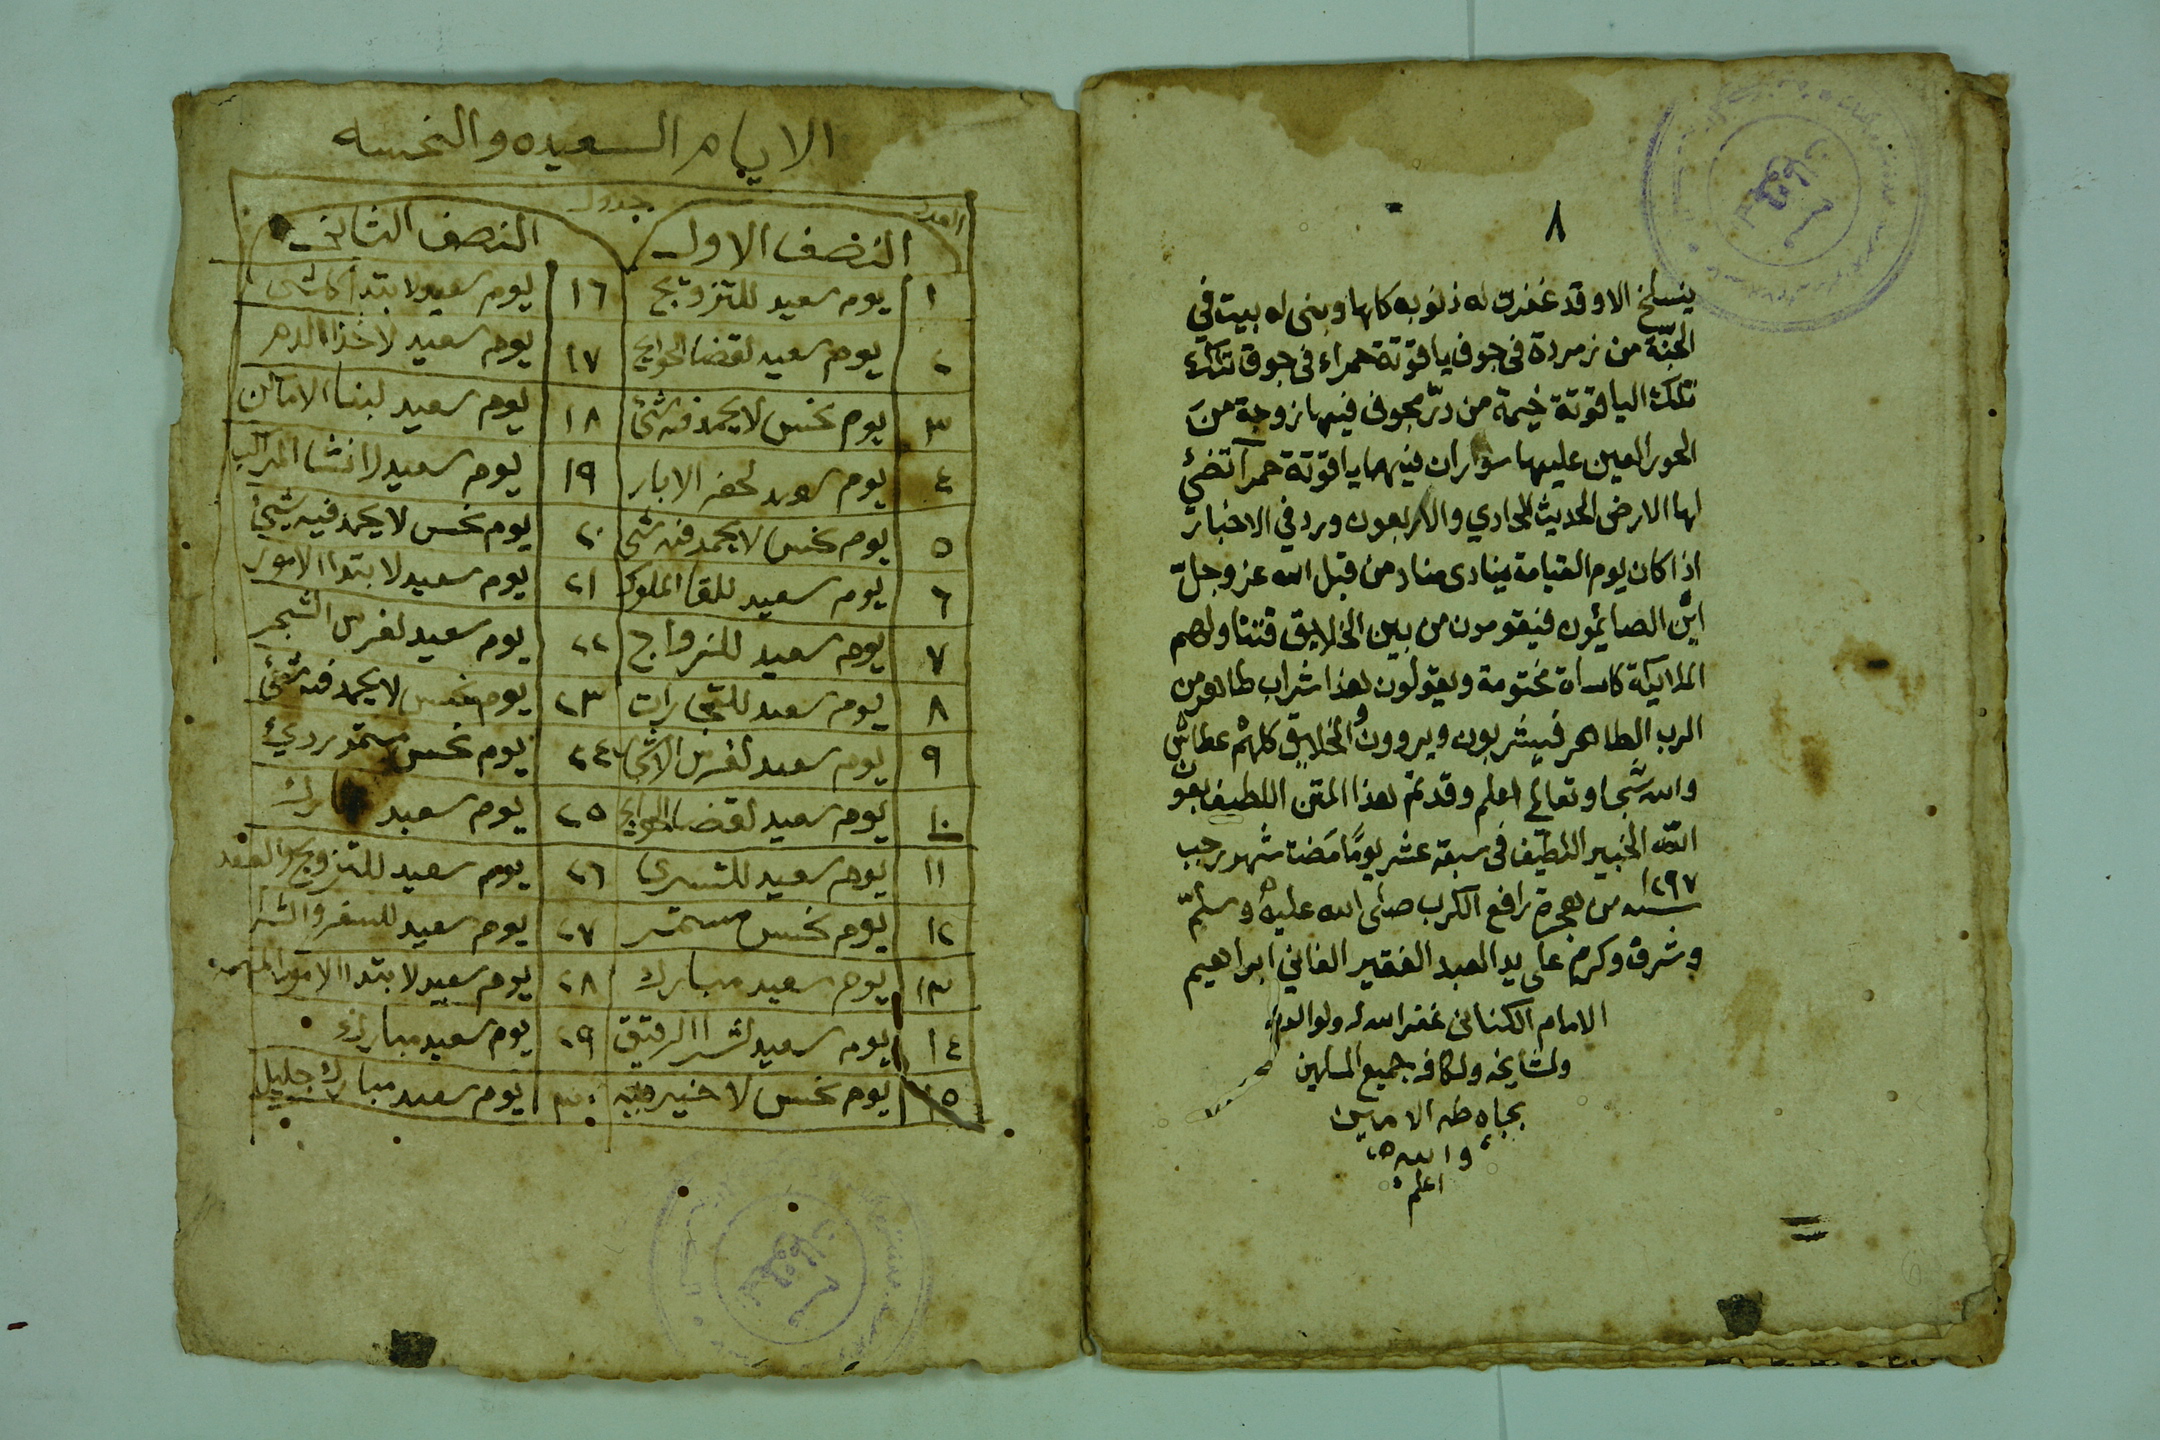 ٨
ينسلخ الا وقد غفرت له ذنوبه كلها وبنى له بيت في
الجنّة من زمردة في جوف ياقوتة حمراء في جوف تلك
تلك الياقوتة خيمة من درّ مجوف فيها زوجة من
الحور العين عليها سواران فيهما ياقوتة حمرآ تضئ
لها الارض الحديث الحادي والاربعون ورد في الاخبار
اذا كان يوم القيامة ينادى مناد من قبل الله عز وجلّ
اين الصائمون فيقومون من بين الخلايق فتتناولهم
الملايكة كاسات مختومة ويقولون هذا شراب طاهر من
الرب الطاهر فيشربون ويروون والخلايق كلهم عطاش
والله سبحا وتعالى اعلم وقد تم هذا المتن اللطيف بعون
الله الخبير اللطيف في سبعة عشر يومًا مضت شهر رجب
١٢٩٧
سنه من هجرة رافع الكرب صلى الله عليه وسلّم
وشرف وكرم على يد العبد الفقير الفاني ابراهيم
الامام الكنانى غفر الله له ولوالديه
ولمشايخه ولكافة جميع المسلمين
بجاه طه الامين
والله
اعلم
الايام السعيده والنحسه
جدول
النصف الاول
النصف الثاني
١ يوم سعيد للتزويج ١٦ يوم سعيد لابتدا كلشى
٢ يوم سعيد لقضا الحوايج ١٧ يوم سعيد لاخذ الدم
٣ يوم نحس لا يحمد فيه شئ ١٨ يوم سعيد لبنا الاماكن
٤ يوم سعيد لحفر الابار ١٩ يوم سعيد لانشا المراكب
٥ يوم نحس لا يحمد فيه شى ٢٠ يوم نحس لا يحمد فيه شيئ
٦ يوم سعيد للقا الملوك ٢١ يوم سعيد لابتدا الامور
٧ يوم سعيد للزواج ٢٢ يوم سعيد لغرس الشجر
٨ يوم سعيد للتجارات ٢٣ يوم نحس لا يحمد فيه شئ
٩ يوم سعيد لغرس الاشجار ٢٤ يوم نحس مستمر ردئ
١٠ يوم سعيد لقضا الحوايج ٢٥ يوم سعيد مبارك
١١ يوم سعيد للتسرى ٢٦ يوم سعيد للتزويج والعقد
١٢ يوم نحس مستمر ٢٧ يوم سعيد للسفر والشرا
١٣ يوم سعيد مبارك ٢٨ يوم سعيد لابتدا الامور المهمه
١٤ يوم سعيد لشرا الرقيق ٢٩ يوم سعيد مبارك
١٥ يوم نحس لا خير فيه ٣٠ يوم سعيد مبارك جليل